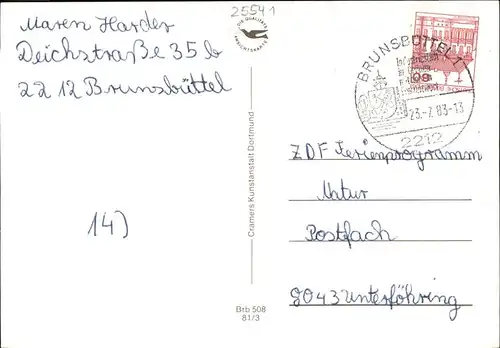 25541
Maren Harder
Deichstraße 35 b
2212 Brunsbüttel
14)
DIE QUALITÄTS
ANSICHTSKARTE
Cramers Kunstanstalt Dortmund
Brb 508
81/3
BRUNSBÜTTEL 1
23.-7.83-13
2212
60
ZDF Ferienprogramm
Natur
Postfach
8043 Unterföhring